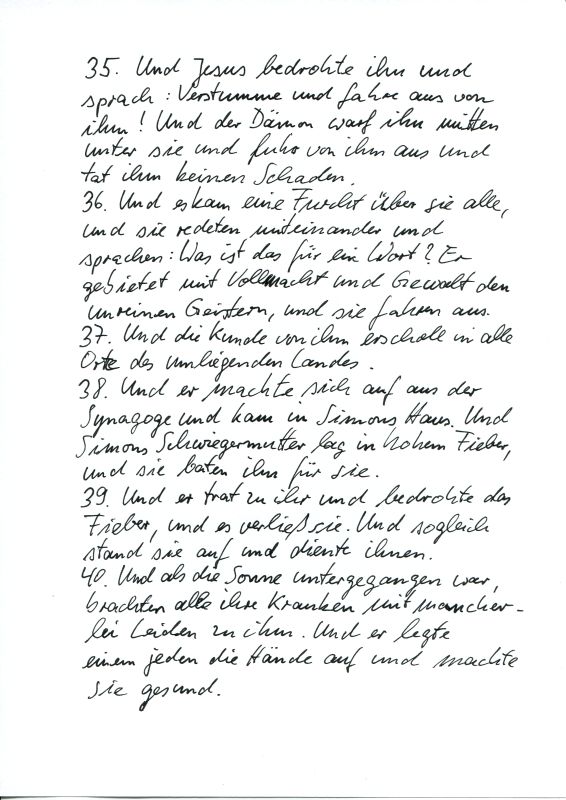 35. Und Jesus bedrohte ihn und
sprach: Verstumme und fahre aus von
ihm! Und der Dämon warf ihn mitten
unter sie und fuhr von ihm aus und
tat ihm keinen Schaden.
36. Und es kam eine Furcht über sie alle,
und sie redeten miteinander und
sprachen: Was ist das für ein Wort? Er
gebietet mit Vollmacht und Gewalt den
unreinen Geistern, und sie fahren aus.
37. Und die Kunde von ihm erscholl in alle
Orte des umliegenden Landes.
38. Und er machte sich auf aus der
Synagoge und kam in Simons Haus. Und
Simons Schwiegermutter lag in hohem Fieber,
und sie baten ihn für sie.
39. Und er trat zu ihr und bedrohte das
Fieber, und es verließ sie. Und sogleich
stand sie auf und diente ihnen.
40. Und als die Sonne untergegangen war,
brachten alle ihre Kranken mit mancher-
lei Leiden zu ihm. Und er legte
einem jeden die Hände auf und machte
sie gesund.